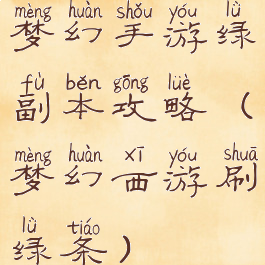 mèng huàn shǒu yóu lǜ
梦幻手游绿
fù běn gōng lüè
副本攻略（
mèng huàn xī yóu shuā
梦幻西游刷
lǜ tiáo
绿条）